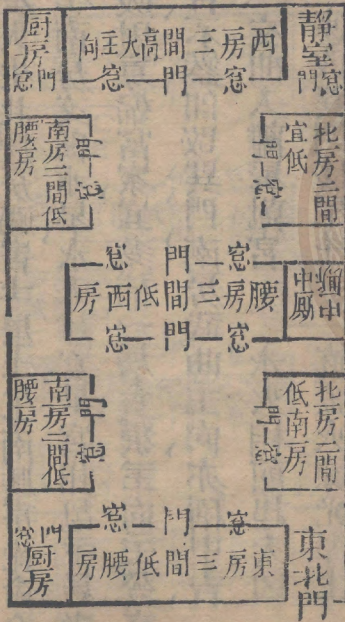 靜室
窓門
西房三間高大主向
窓門窓
厨房
門窓
北房二間
宜低
門窓
南房二間低
腰房
門窓
窓門窓
腰房三間低西房
窓門窓
中
中
北房二間
低南房
門窓
南房二間低
腰房
門窓
東北門
窓門窓
東房三間低腰房
門窓
厨房